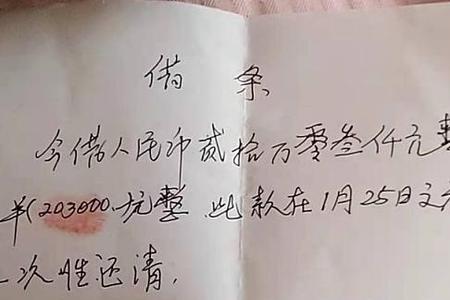 借条
今借人民币贰拾万零叁仟元整
羊(203000.元整 此款在1月25日之
一次性还清,